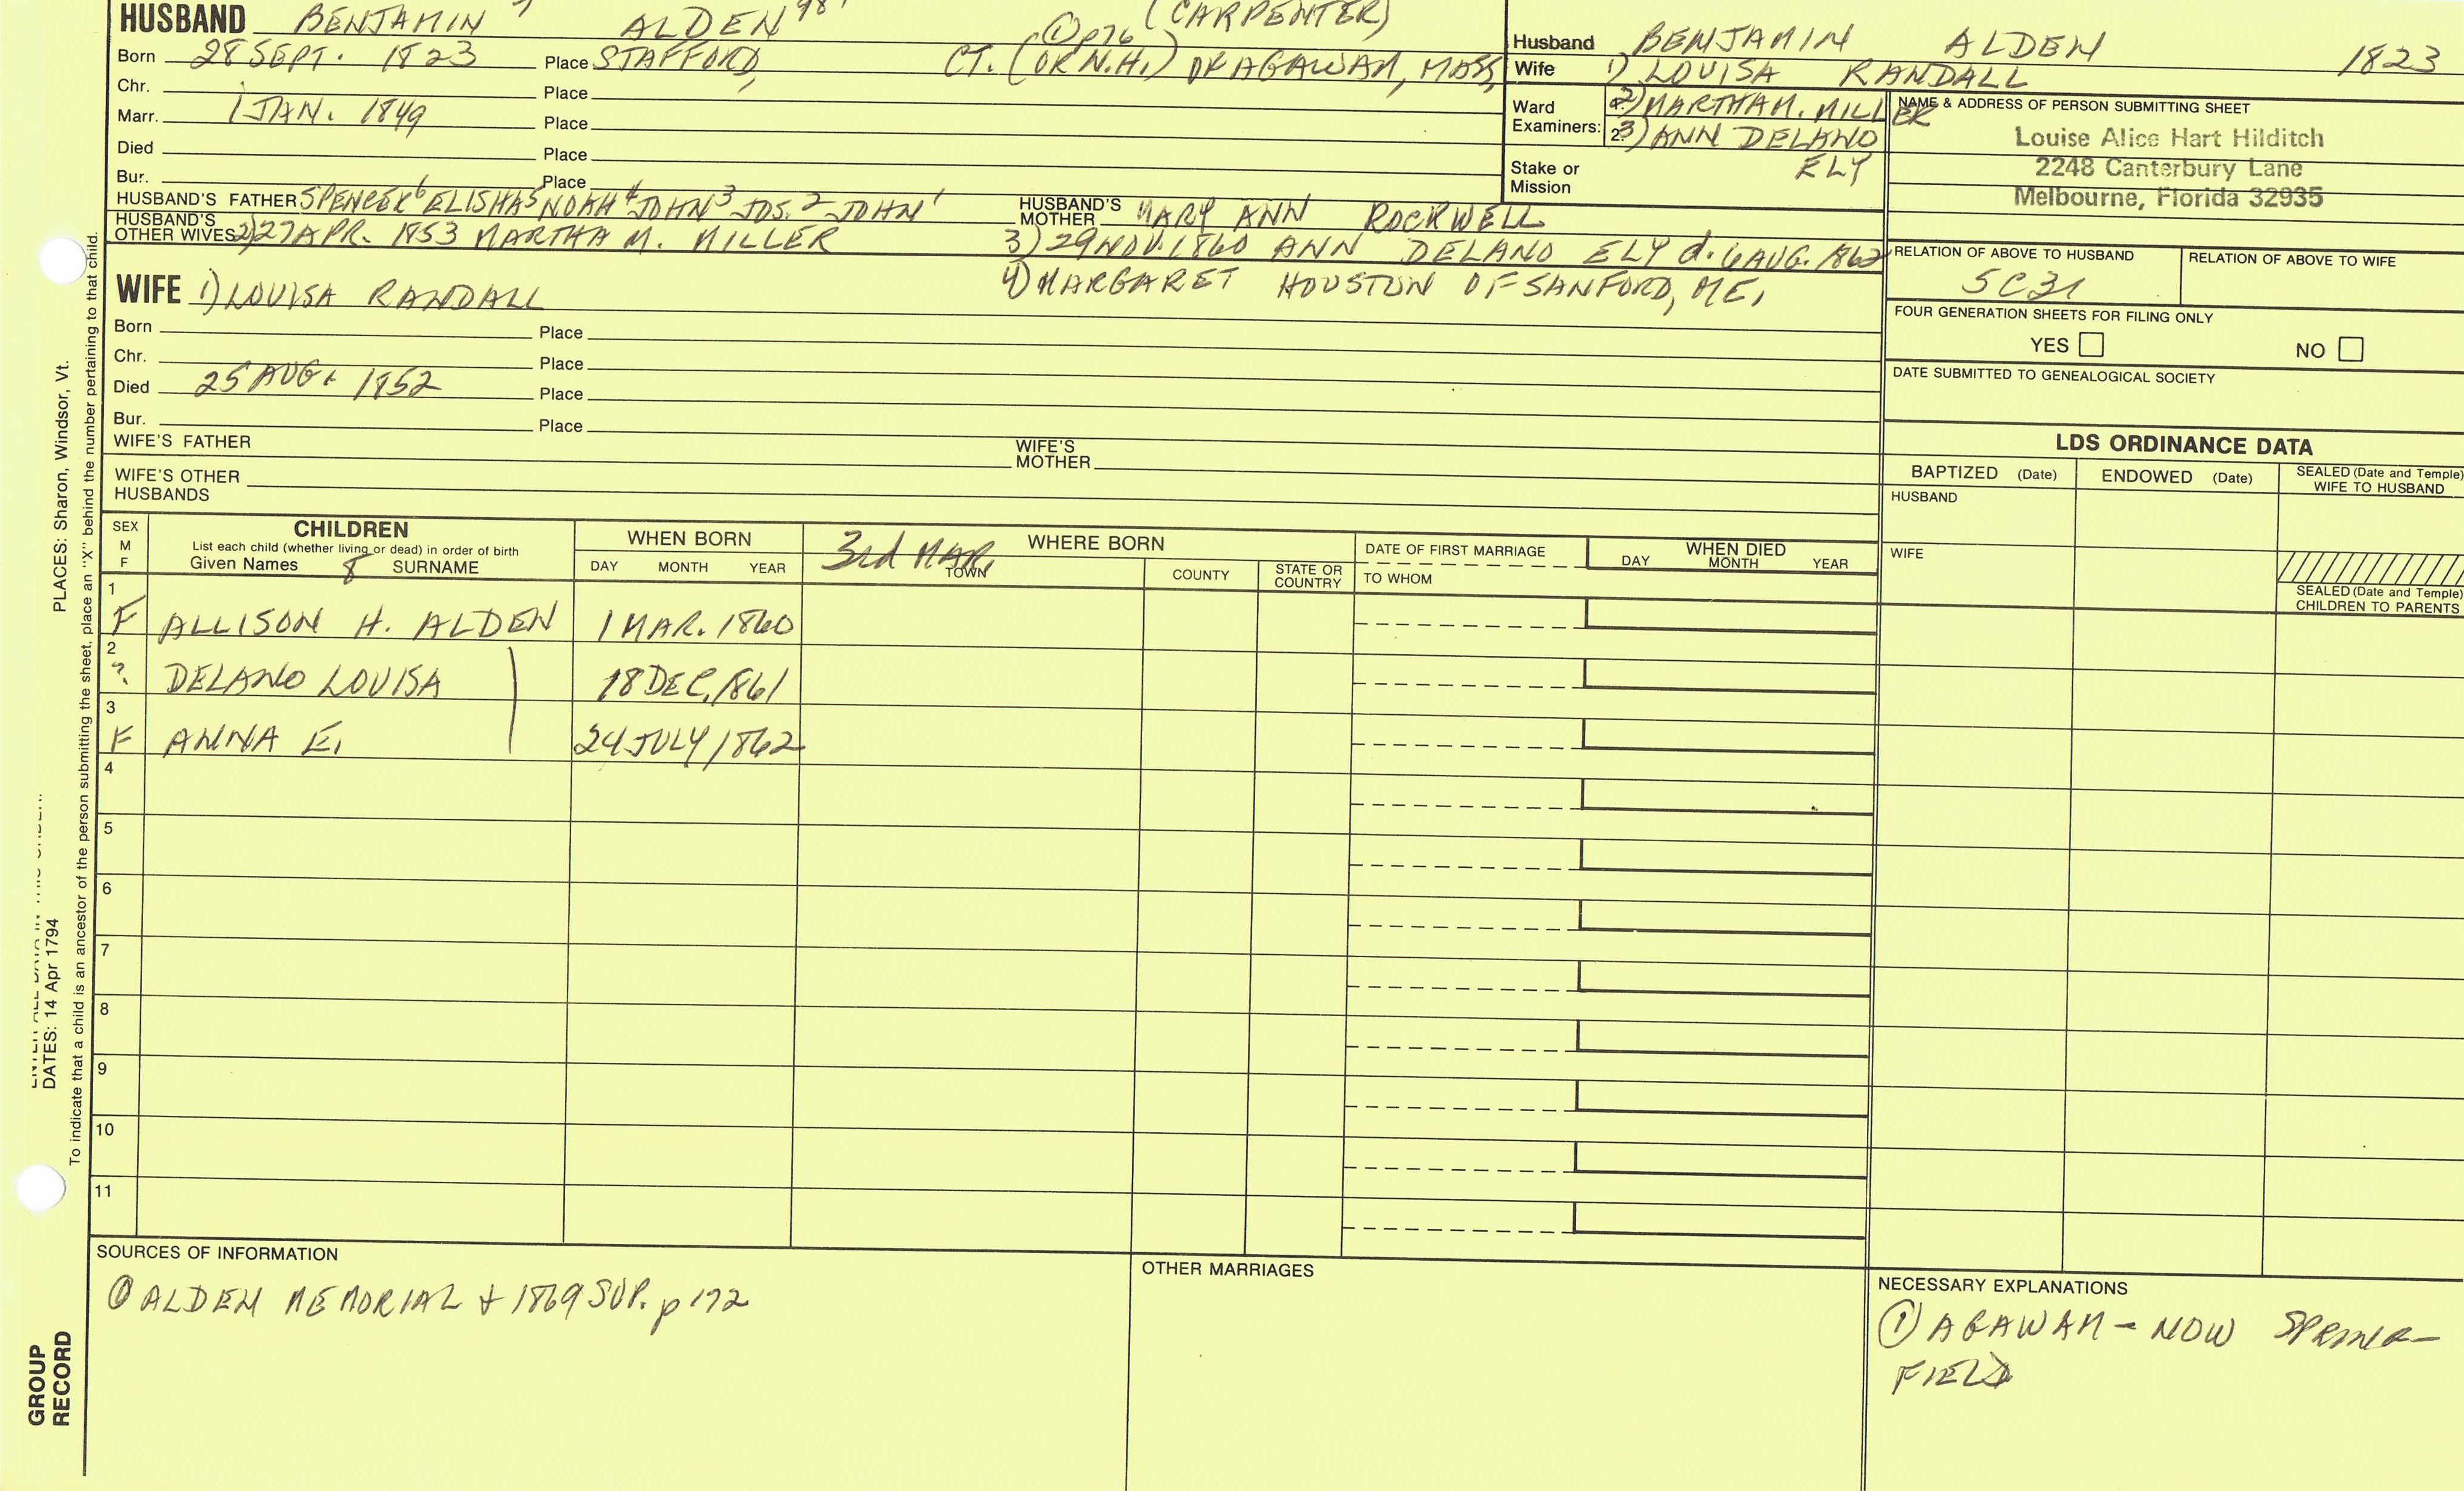 HUSBAND BENJAMIN 7 ALDEN 981 ① p76 (CARPENTER)
Born 28 SEPT. 1823 Place STAFFORD, CT. (OR N.H.) OR AGAWAM, MASS,
Chr. Place
Marr. 1 JAN. 1849 Place
Died Place
Bur. Place
HUSBAND'S FATHER SPENCER 6 ELISHA 5 NOAH 4 JOHN 3 JOS. 2 JOHN 1 HUSBAND'S MOTHER MARY ANN ROCKWELL
HUSBAND'S OTHER WIVES 2) 27 APR. 1853 MARTHA M. MILLER 3) 29 NOV. 1860 ANN DELANO ELY d. 6 AUG. 1862
4) MARGARET HOUSTON OF SANFORD, ME.
WIFE 1) LOUISA RANDALL
Born Place
Chr. Place
Died 25 AUG. 1852 Place
Bur. Place
WIFE'S FATHER WIFE'S MOTHER
WIFE'S OTHER HUSBANDS
Husband BENJAMIN ALDEN 1823
Wife 1) LOUISA RANDALL
Ward Examiners: 2) MARTHA M. MILLER
2. 3) ANN DELANO ELY
Stake or Mission
NAME & ADDRESS OF PERSON SUBMITTING SHEET
Louise Alice Hart Hilditch
2248 Canterbury Lane
Melbourne, Florida 32935
RELATION OF ABOVE TO HUSBAND RELATION OF ABOVE TO WIFE
5C3r
FOUR GENERATION SHEETS FOR FILING ONLY
YES NO
DATE SUBMITTED TO GENEALOGICAL SOCIETY
LDS ORDINANCE DATA
BAPTIZED (Date) ENDOWED (Date) SEALED (Date and Temple) WIFE TO HUSBAND
HUSBAND
WIFE
SEALED (Date and Temple) CHILDREN TO PARENTS
SEX M F
CHILDREN
List each child (whether living or dead) in order of birth
Given Names 8 SURNAME
WHEN BORN
DAY MONTH YEAR
3rd MAR.
WHERE BORN
TOWN COUNTY STATE OR COUNTRY
DATE OF FIRST MARRIAGE
TO WHOM
WHEN DIED
DAY MONTH YEAR
1 F ALLISON H. ALDEN 1 MAR. 1860
2 ? DELANO LOUISA 18 DEC. 1861
3 F ANNA E. 24 JULY 1862
4
5
6
7
8
9
10
11
SOURCES OF INFORMATION
① ALDEN MEMORIAL + 1869 SUP. p 172
OTHER MARRIAGES
NECESSARY EXPLANATIONS
① AGAWAM - NOW SPRING-
FIELD
PLACES: Sharon, Windsor, Vt.
DATES: 14 Apr 1794
To indicate that a child is an ancestor of the person submitting the sheet, place an "X" behind the number pertaining to that child.
GROUP
RECORD